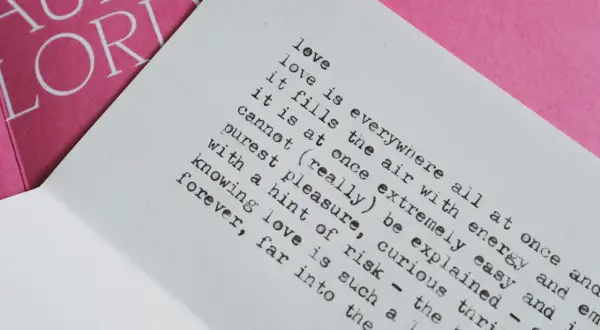 LORI
love
love is everywhere all at once and
it fills the air with energy and em
it is at once extremely easy and i
cannot (really) be explained -
purest pleasure, curious thri
with a hint of risk - the
knowing love is such a l
forever, far into the